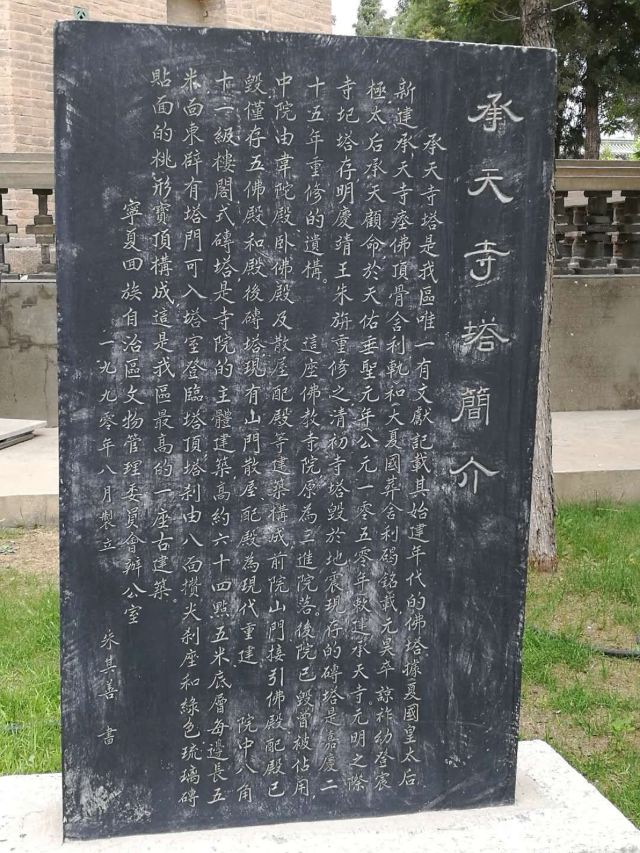 承天寺塔簡介
承天寺塔是我區唯一有文獻記載其始建年代的佛塔據夏國皇太后
新建承天寺瘞佛頂骨舍利軌和大夏國葬舍利碣銘載元昊卒諒祚幼登宸
極太后承天顧命於天佑垂聖元年公元一零五零年敕建承天寺元明之際
寺圮塔存明慶靖王朱㫋重修之清初寺塔毀於地震現存的磚塔是嘉慶二
十五年重修的遺構。 這座佛教寺院原為三進院落。後院已毀曾被佔用
中院由韋陀殿卧佛殿及散屋配殿等建築構成前院山門接引佛殿配殿已
毀僅存五佛殿和殿後磚塔現有山門散屋配殿為現代重建 院中八角
十一級樓閣式磚塔是寺院的主體建築高約六十四點五米底層每邊長五
米面東辟有塔門可入塔室登臨塔頂塔刹由八面攢尖刹座和綠色琉璃磚
貼面的桃形寶頂構成這是我區最高的一座古建築。
寧夏回族自治區文物管理委員會辦公室
一九九零年八月製立 朱其善 書